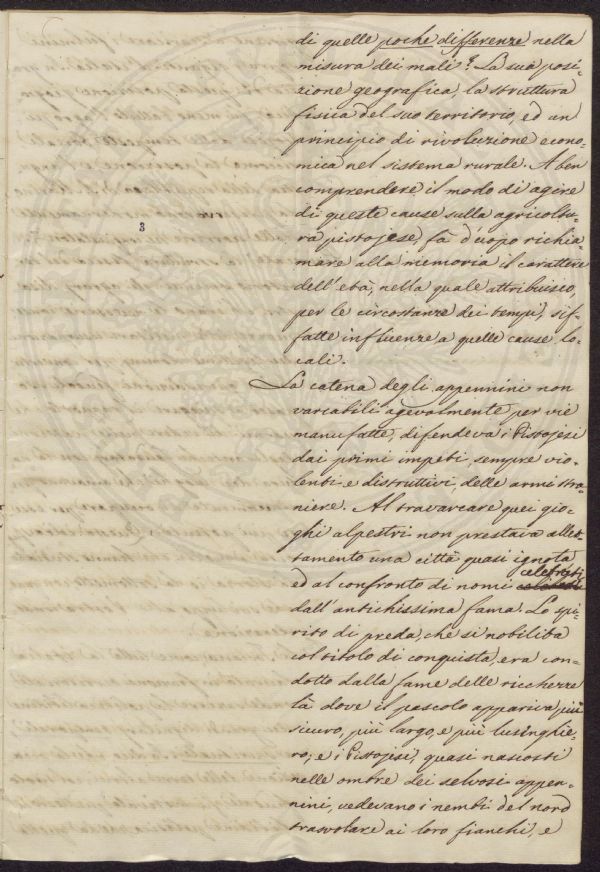 di quelle poche differenze nella
misura dei mali? La sua posi-
zione geografica, la struttura
fisica del suo territorio, ed un
principio di rivoluzione econo-
mica nel sistema rurale. A ben
comprendere il modo di agire
di queste cause sulla agricoltu-
ra pistojese, fa d'uopo richia-
mare alla memoria il carattere
dell'età, nella quale attribuisco,
per le circostanze dei tempi, sif-
fatte influenze a quelle cause lo-
cali.
3
La catena degli appennini non
varcabili agevolmente per vie
manufatte, difendeva i Pistojesi
dai primi impeti, sempre vio-
lenti e distruttivi, delle armi stra-
niere. Al travarcare quei gio-
ghi alpestri non prestava allet-
tamento una città quasi ignota
ed al confronto di nomi celebrati
dall'antichissima fama. Lo spi-
rito di preda, che si nobilita
col titolo di conquista, era con-
dotto dalla fame delle ricchezze
là dove il pascolo appariva più
sicuro, più largo, e più lusinghie-
ro; e i Pistojesi, quasi nascosti
nelle ombre dei selvosi appen-
nini, vedevano i nembi del nord
trasvolare ai loro fianchi, e